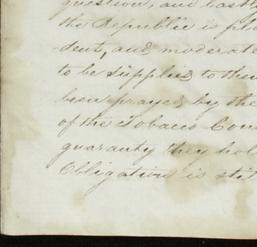 question, and lastly
the Republic is pla
dent, and moderate
to be supplied to them
been prayed by the
of the Tobacco Con
guaranty they hol
Obligation is still